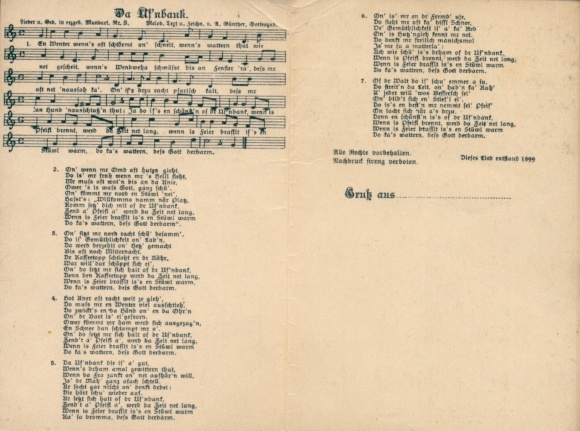 Da Uf'nbank.
Lieder u. Ged. in erzgeb. Mundart. Nr. 5. Melod. Text u. Zeichn. v. A. Günther, Gottesgab.
1. En Wenter wenn's oft schtörmt on' schneit, wenn's wattern thut wie
net gescheit, wenn's Wendweha schmößt bis an Fenster ra, dess mr
oft net 'nausoh ka'. On' is's drzu racht frisch kalt, dess mr
kan Hund 'nausschtan'n thut: Ja do is's en schönst'n of dr Uf'nbank, wenn is
Pfeifl brennt, werd da Zeit net lang, wenn is Feier brasslt is's en
Stüwl warm, do ka's wattern, dess Gott derbarm.
2. On' wenn mr Omd oft hutzn gieht,
Do is' mr freh wenn mr's Heisl sieht,
Mr muss oft wot'n bis an da Knie,
Ower 's is wafs Gott, ganz schü'.
On' kömmt mr nord en Stüwl 'nei',
Hasst's: „Willkomma namm när Platz,
Komm setz' dich mit of de Uf'nbank,
Zend a' Pfeifl a' werd da Zeit net lang,
Wenn is Feier brasslt is en Stüwl warm
Do ka's wattern, dess Gott derbarm".
3. On' sitzt mr nord racht schü' besamm',
Do is' Gemüthlichkeit on' Lab'n,
Do werd derzehlt on' Hetz' gemacht
Bis oft noch Mitternacht.
Dr Kaffeetopp schtieht en dr Röhr,
War will dar schöppt sich ei',
On' do setzt mr sich halt of dr Uf'nbank,
Wenn den Kaffeetopp werd da Zeit net lang,
Wenn is Feier brasslt is en Stüwl warm
Do ka's wattern, dess Gott derbarm.
4. Hot Aner oft racht weit ze gieh',
Do muss mr en Wenter viel ausschtieh,
Do zwickt's en da Händ on' en da Ohr'n
On' dr Bart is' ei'gefrorn.
Ower kömmt mr ham werd sich ausgezug'n,
En Schnee dan schtampt mr a'.
On' do setzt mr sich halt of dr Uf'nbank,
Zend't a' Pfeifl a', werd da Zeit net lang,
Wenn is Feier brasslt is en Stüwl warm
Do ka's wattern, dess Gott derbarm.
5. Da Uf'nbank die is' a' gut,
Wenn's dreham amol gewittern thut,
Wenn da Fra zankt on' net aufhür'n will,
Ja' dr Mah' ganz afach schtill.
Ar socht gar nischt on' denkt debei:
Die hört schu' wieder auf.
Ar setzt sich halt of dr Uf'nbank,
Zend't a' Pfeifl a', werd da Zeit net lang,
Wenn is Feier brasslt is en Stüwl warm
Ka' sa bromma, dess Gott derbarm.
6. On' is' mr en dr Fremd' ufe,
Do sieht mr oft ka' bissl Schnee,
On' dr Gemüthlichkeit is' a' ka' Red
On' is Hutz'ngieh kennt mr net.
Do denkt mr freilich manichsmol
Ja' mr su a materia':
Ach wie schü' is's derham of dr Uf'nbank,
Wenn is Pfeifl brennt werd da Zeit net lang,
Wenn is Feier brasslt is en Stüwl warm
Do ka's wattern, dess Gott derbarm.
7. Of dr Walt do is' schu' emmer a so,
Do streit'n da Leit, on' hab'n ka' Ruh
A' jeder will 'wos Besseres sei'
On' bild't sich en' Stiefl ei'.
Do is's en best'n mr nemmt sei' Pfeif'
On lacht sich när a's drzu.
Denn en schönst'n is's of dr Uf'nbank,
Wenn is Pfeifl brennt, werd da Zeit net lang,
Wenn is Feier brasslt is en Stüwl warm
Do ka's wattern, dess Gott derbarm.
Alle Rechte vorbehalten.
Nachdruck streng verboten.
Dieses Lied entstand 1899
Gruß aus